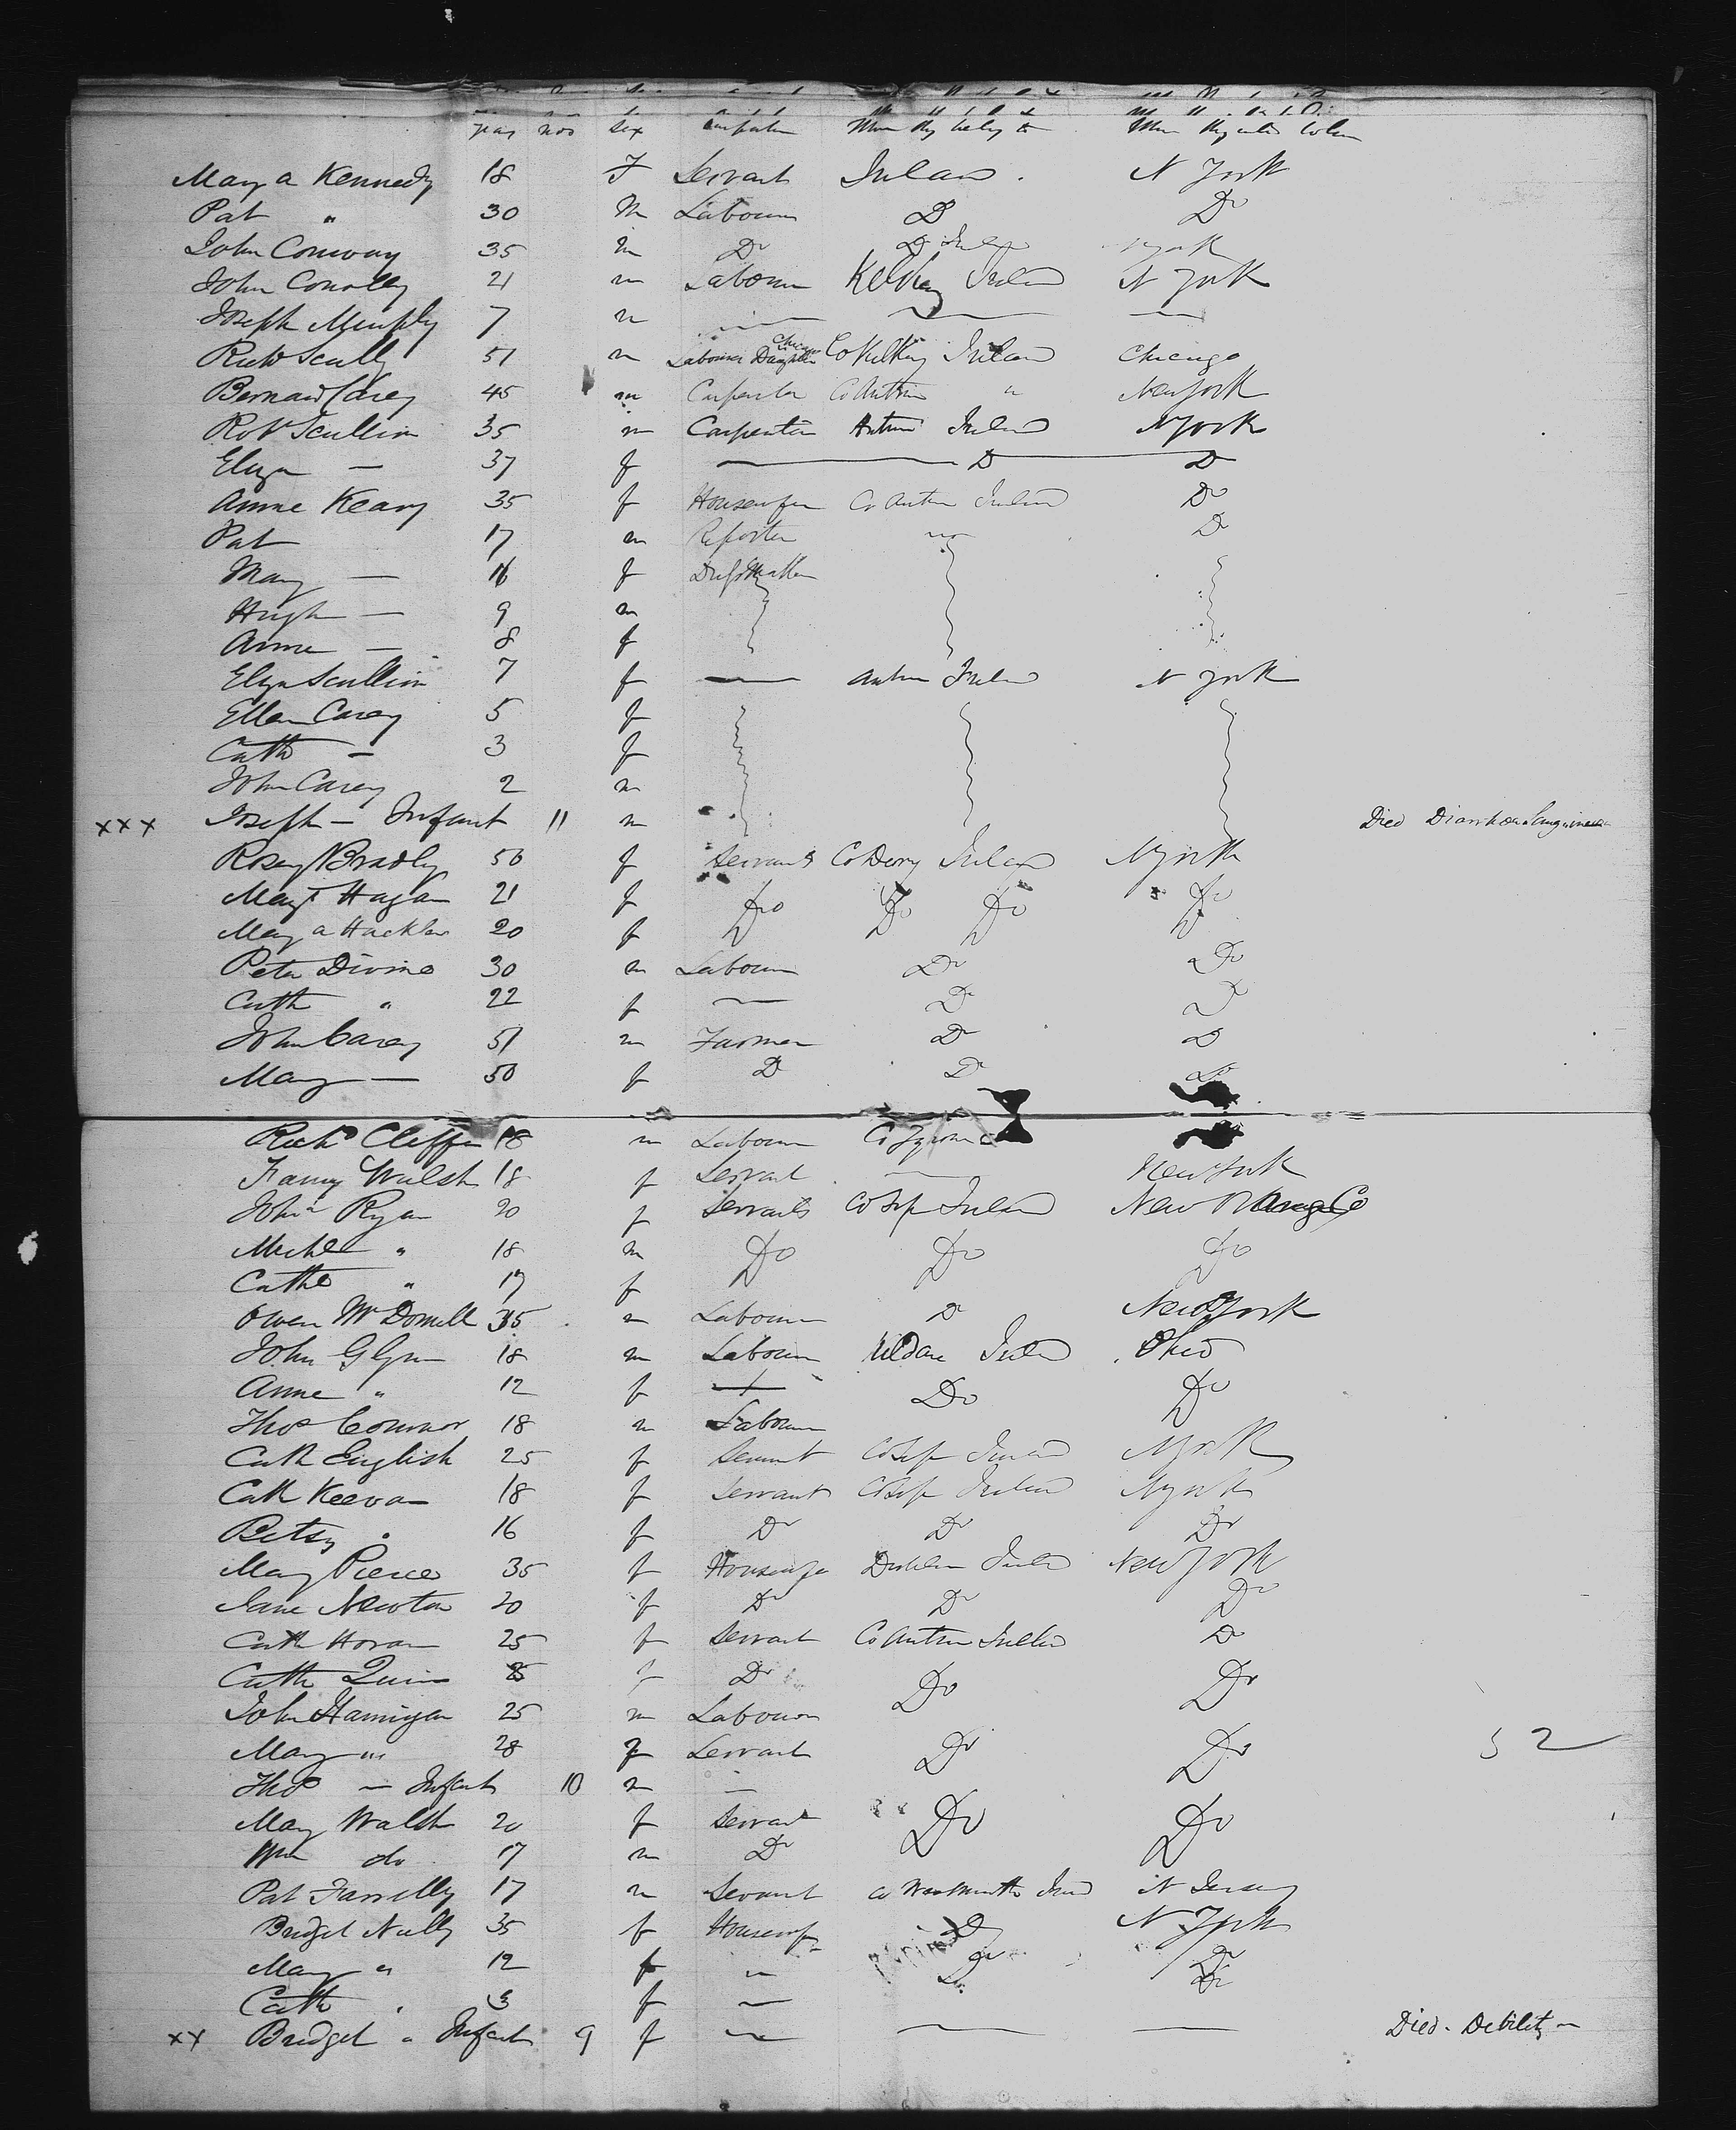 years mos sex
Mary A Kennedy 18 F Servant Ireland N York
Pat " 30 m Labourer Do Do
John Conway 35 m Do Do N York
John Conolly 21 m Labourer Kilkeny Ireland N York
Joseph Murphy 7 m — — —
Richd Scully 51 m Labourer Daughter Chicago Co Kilkeny Ireland Chicago
Bernard Carey 45 m Carpenter Co Antrim " New York
Robt Scullion 35 m Carpenter Antrim Ireland N York
Eliza — 37 f — Do Do
Anne Keary 35 f Housewife Co Antrim Ireland Do
Pat 17 m Reporter Do
Mary — 16 f DressMaker
Hugh — 9 m
Anne — 8 f
Eliza Scullion 7 f — Antrim Ireland N York
Ellen Carey 5 f
Cath — 3 f
John Carey 2 m
xxx Joseph — Infant 11 m Died Diarrhoea
Rosey Bradly 50 f Servants Co Derry Ireland N York
Mary Hagan 21 f Do Do Do Do
Mary A Hackler 20 f
Peter Divine 30 m Labourer Do Do
Cath " 22 f — Do Do
John Carey 51 m Farmer Do Do
Mary — 50 f Do Do Do
Richd 18 m Labourer Co Tyrone
Fanny Walsh 18 f Servant — New York
Johna Ryan 20 f Servants Co Tip Ireland New Orange Co
Michl " 18 m Do Do Do
Cathe " 17 f
Owen McDonnell 35 m Labourer Do New York
John Glynn 18 m Labourer Kildare Ireland Ohio
Anne " 12 f Do Do
Thos Connor 18 m Labourer
Cath English 25 f Servant Co Tip Ireland N York
Cath Keevan 18 f Servant Co Tip Ireland N York
Betsy " 16 f Do Do Do
Mary Pierce 35 f Housewife Dublin Ireland New York
Jane Newton 20 f Do Do Do
Cath Horan 25 f Servant Co Antrim Ireland Do
Cath Quinn 25 f Do Do Do
John Hannigan 25 m Labourer
Mary " 28 f Servant Do Do 52
Thos — Infant 10 m —
Mary Walsh 20 f Servant Do Do
Wm do 17 m Do
Pat Farrelly 17 m Servant Co Westmeath Ireland N Jersey
Bridget Nully 35 f Housewife Do N York
Mary " 12 f — Do Do
Cath " 3 f —
xx Bridget " Infant 9 f — — — Died - Debility -